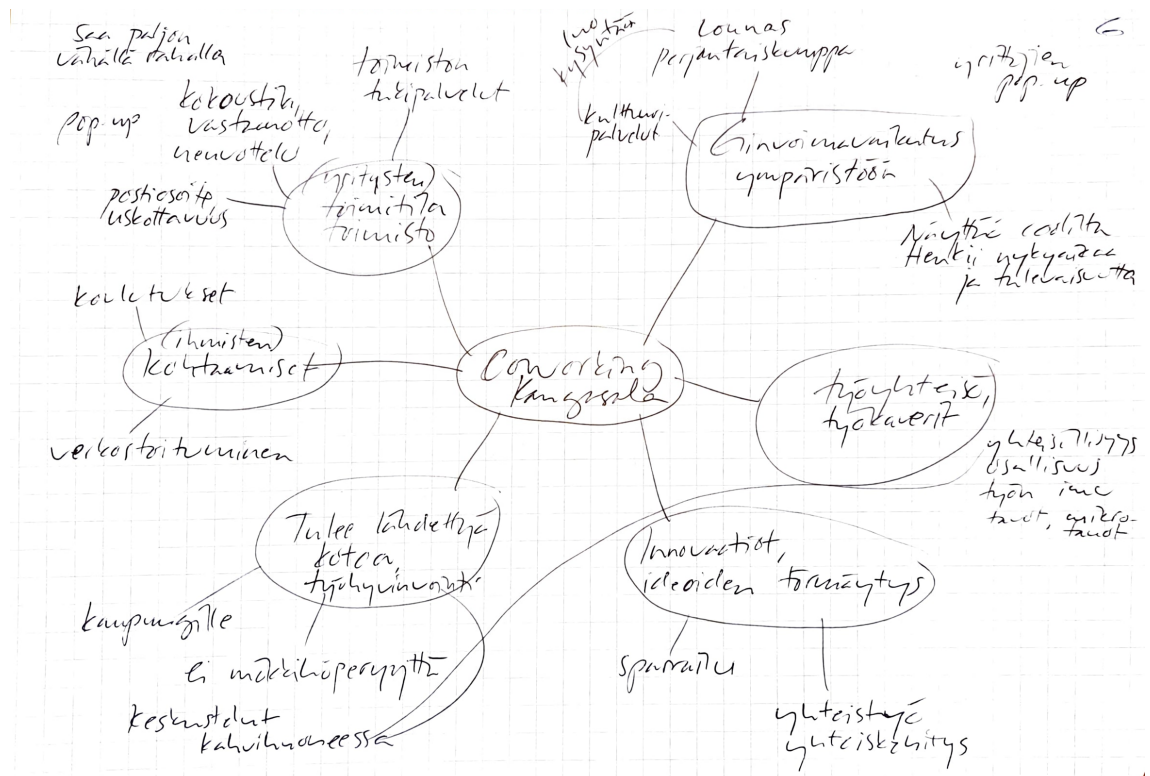 Saa paljon
vähällä rahalla
pop-up
kokoustila,
vastaanotto,
neuvottelu
toimiston
tukipalvelut
postiosoite
uskottavuus
(yritysten)
toimitila
toimisto
luo
kysyntää
Lounas
perjantaiskumppa
kulttuuri-
palvelut
yrittäjien
pop-up
Elinvoimavaikutus
ympäristöön
Näyttää coolilta
Henkii nykyaikaa
ja tulevaisuutta
koulutukset
(ihmisten)
kohtaamiset
verkostoituminen
Coworking
Kangasala
työyhteisö,
työkaverit
yhteisöllisyys
osallisuus
työn imu
tavat, mikro-
tavat
Tulee lähdettyä
kotoa,
työhyvinvointi
kaupungille
ei mökkihöperyyttä
keskustelut
kahvihuoneessa
Innovaatiot,
ideoiden törmäytys
sparrailu
yhteistyö
yhteiskehitys